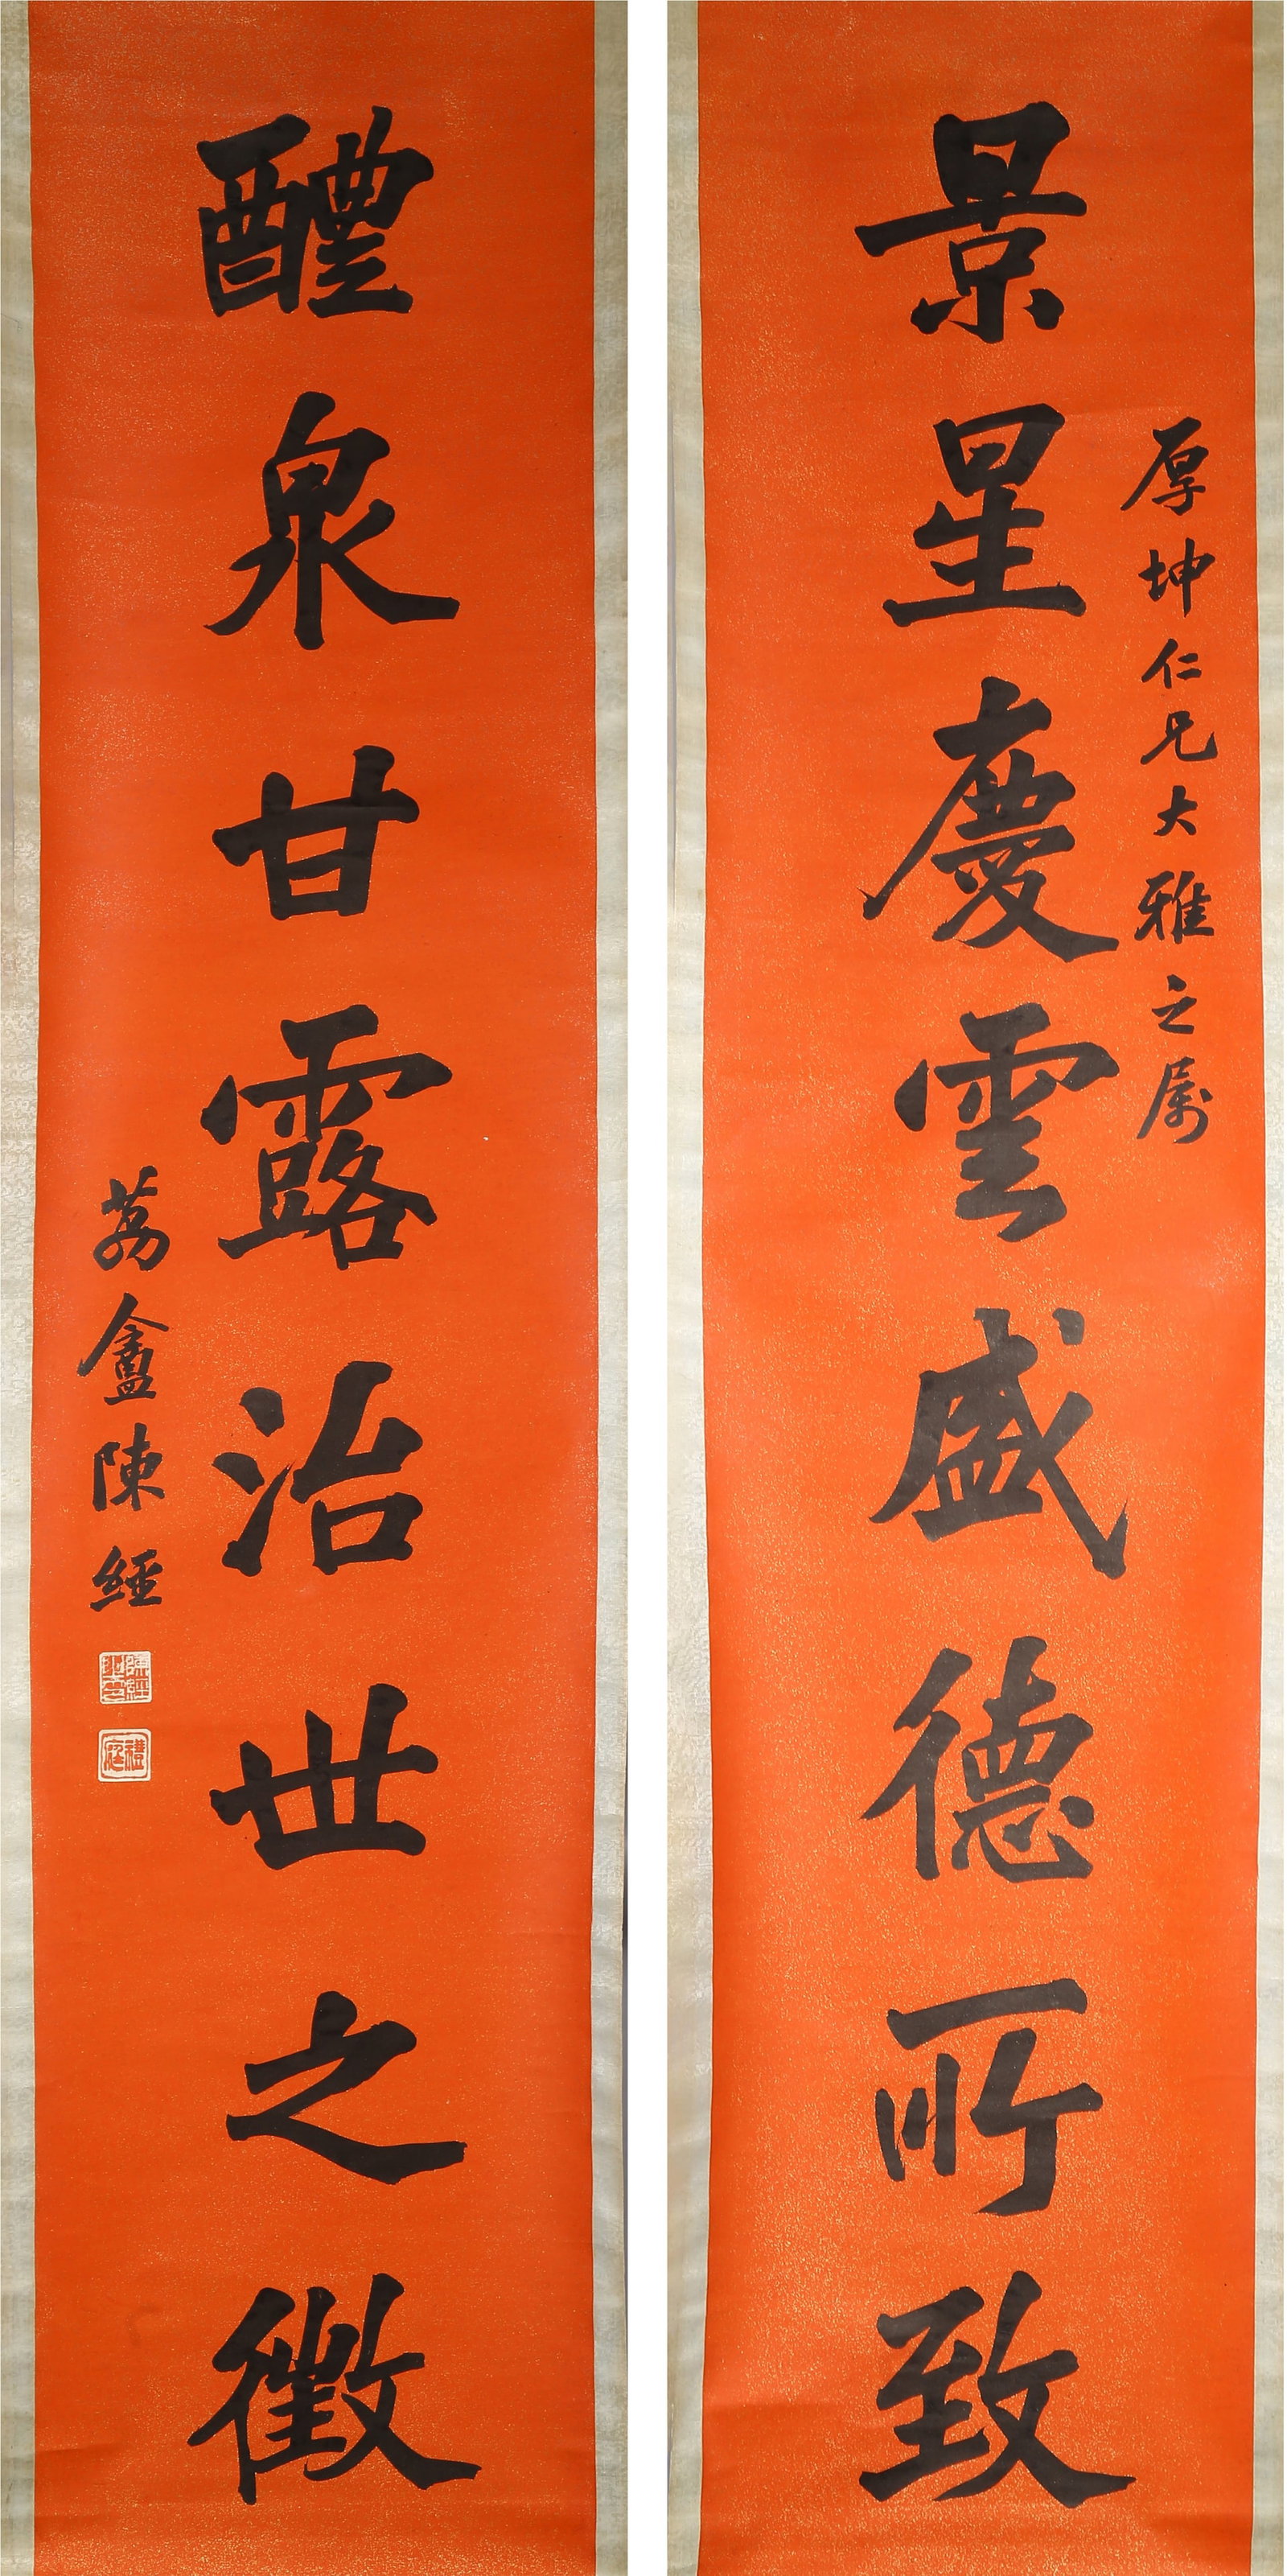 厚坤仁兄大雅之属
景星慶雲盛德所致
醴泉甘露治世之徵
荔盦陳經
陳經